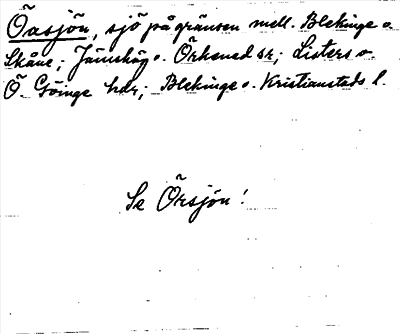 Öasjön, sjö på gränsen mell. Blekinge o.
Skåne; Jämshög o. Örkened sr; Listers o.
Ö. Göinge hdr; Blekinge o. Kristianstads l.
Se Örsjön!